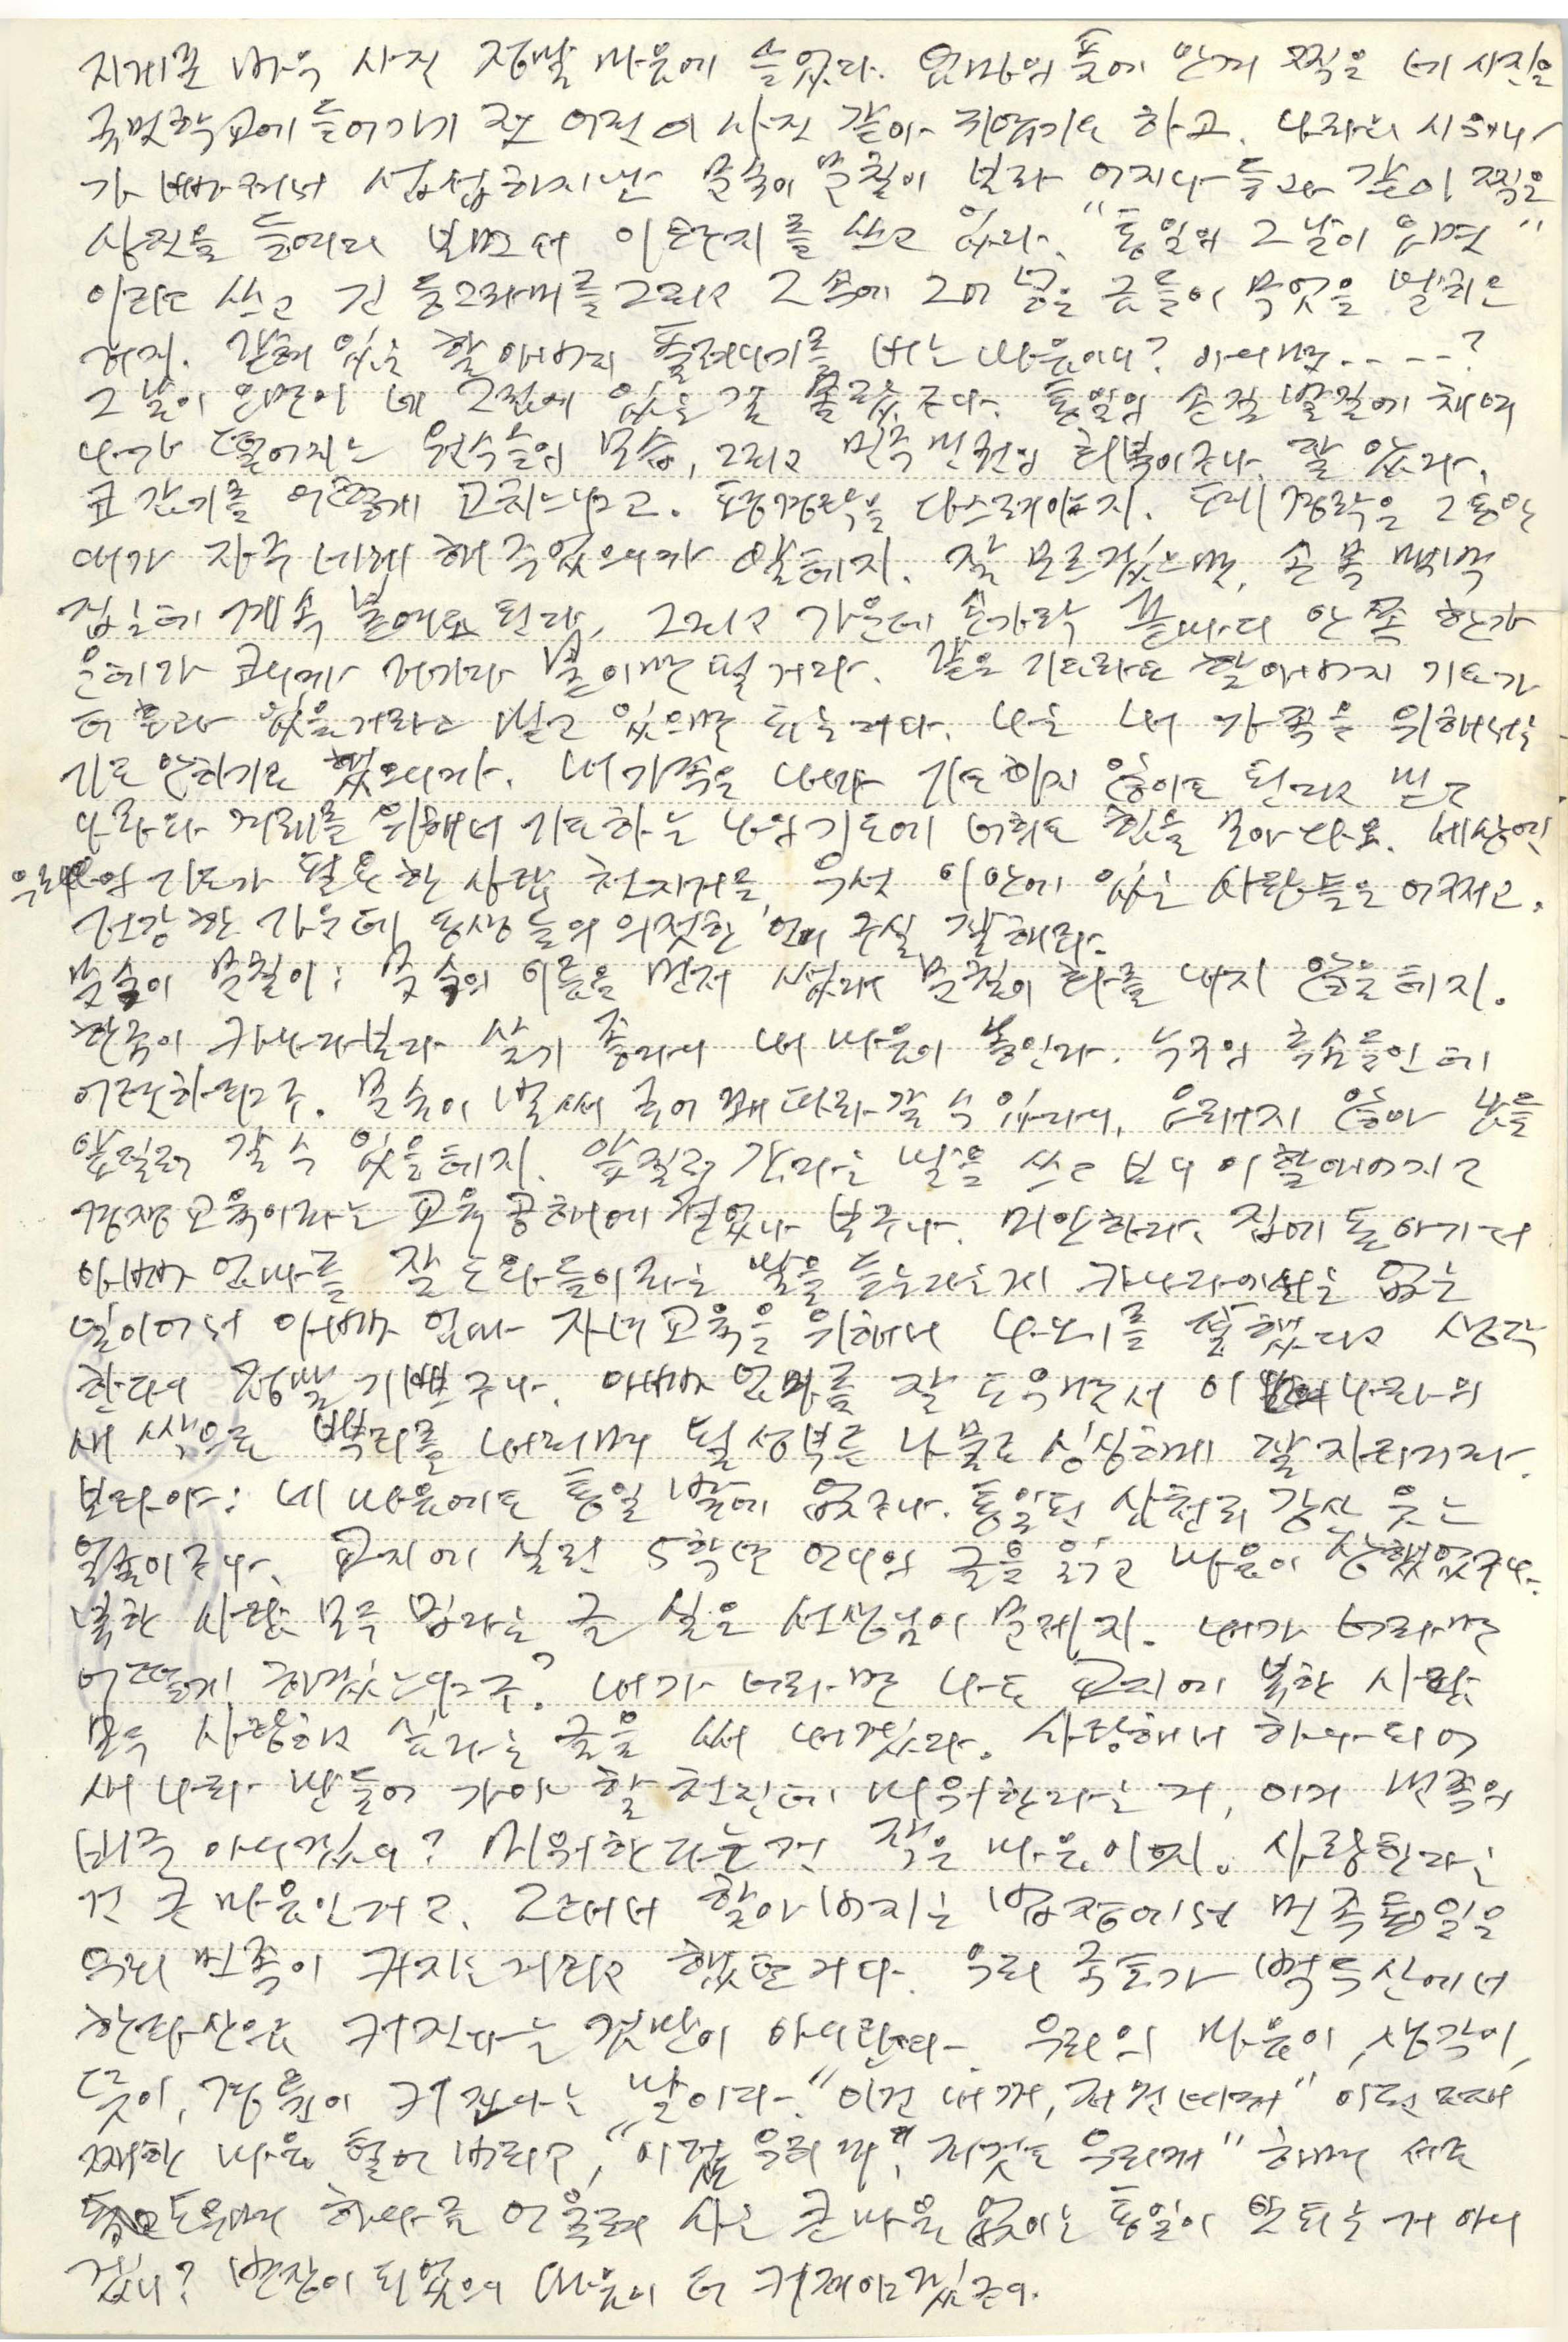 지게를 배운 사진 정말 마음에 들었다. 엄마의 품에 안겨 찍은 네 사진은
국민학교에 들어가기 전 어린이 사진 같아 귀엽기도 하고.
가 빠져서 섭섭하지만 문숙이 문칠이 보라 어지나 들과 같이 찍은
사진을 들여다 보면서 이 편지를 쓰고 있다. "통일의 그날이 오면"
이라고 쓰고 긴 동그라미를 그리고 그 속에 그어 넣은 금들이 무엇을 말하는
거지. 갇혀 있는 할아버지 풀려나기를 비는 마음이니? 아니면 - - - -?
그 날이 오면이 네 그림에 있는 걸 몰랐구나. 통일의 손길 발길에 채여
나가 떨어지는 원수들의 모습, 그리고 민주 민권의 회복이구나. 잘 있다.
코 감기를 어떻게 고치느냐고. 폐경락을 다스려야지. 폐경락은 그동안
내가 자주 네게 해 주었으니까 알테지. 잘 모르겠으면, 손목 맥박
집는데 계속 붙여도 된다. 그리고 가운데 손가락 끝마디 안쪽 한가
운데가 코니까 거기다 붙이면 될 거라. 같은 기도라도 할아버지 기도가
더 효과 있을거라고 믿고 있으면 되는 거다. 나는 내 가족을 위해서는
기도 안하기로 했으니까. 내 가족은 내가 기도하지 않아도 된다고 믿고
나라와 겨레를 위해서 기도하는 나의 기도에 너희도 힘을 모아 다오. 세상엔
우리의 기도가 필요한 사람 천지거든, 우선 이 안에 있는 사람들은 어쩌고.
건강한 가운데 동생들의 의젓한 언니 구실 잘해라.
문숙이 문칠이: 문숙의 이름을 먼저 썼대서 문칠이 화를 내지 않을테지.
한국이 캐나다보다 살기 좋다니 내 마음이 놓인다. 누구의 핏줄들인데
어련하려구. 문숙이 벌써 국어 꽤 따라갈 수 있다니, 오래지 않아 남을
앞질러 갈 수 있을테지. 앞질러 간다는 말을 쓰고 보니 이 할아버지도
경쟁교육이라는 교육 공해에 젖었나 보구나. 미안하다. 집에 돌아가서
아빠 엄마를 잘 도와드리라는 말을 듣는다는게 캐나다에서는 없는
일이어서 아빠 엄마가 자녀 교육을 위해서 나오기를 잘했다고 생각
한다니 정말 기쁘구나. 아빠 엄마를 잘 도우면서 이 나라의
새 싹으로 뿌리를 내리며 될성부른 나물로 싱싱하게 잘 자라거라.
보라야: 네 마음에도 통일 밖에 없구나. 통일된 삼천리 강산 웃는
얼굴이구나. 교지에 실린 5학년 언니의 글을 읽고 마음이 상했었구나.
북한 사람 모두 밉다는 글 실은 선생님이 문제지. 내가 너라면
어떻게 하겠느냐구? 내가 너라면 나도 교지에 북한 사람
모두 사랑하고 싶다는 글을 써 내겠다. 사랑해서 하나 되어
새 나라 만들어 가야 할 천진데 미워한다는 거, 이거 민족의
비극 아니겠니? 미워한다는건 작은 마음이지. 사랑한다는
건 큰 마음인 거고. 그래서 할아버지는 법정에서 민족통일은
우리 민족이 커지는 거라고 했던 거다. 우리 국토가 백두산에서
한라산으로 커진다는 것만이 아니란다. 우리의 마음이, 생각이,
뜻이, 경륜이 커진다는 말이다. "이건 내꺼, 저건 네꺼" 이런
마음 털어 버리고, "이것도 우리꺼, 저것도 우리꺼" 하며 서로
도우며 하나로 어울려 사는 큰 마음 없이는 통일이 안되는 거 아니
겠니? 반장이 되었으니 마음이 더 커져야겠구나.